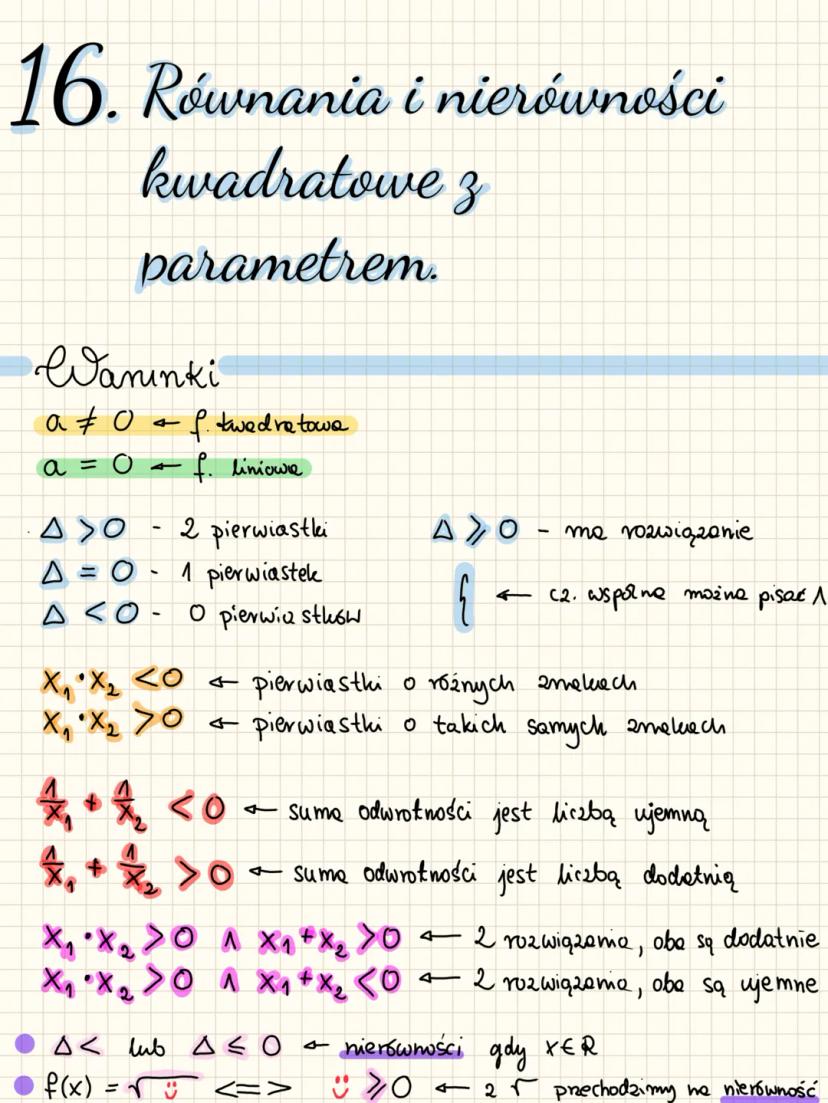 16. Równania i nierówności
kwadratowe z
parametrem.
Warunki
a ≠ 0 ← f. kwadratowa
a = 0 ← f. liniowa
Δ > 0 - 2 pierwiastki
Δ = 0 - 1 pierwiastek
Δ < 0 - 0 pierwiastków
Δ ⩾ 0 - ma rozwiązanie
{ ← cz. wspólna można pisać ∧
x₁·x₂ < 0 ← pierwiastki o różnych znakach
x₁·x₂ > 0 ← pierwiastki o takich samych znakach
1/x₁ + 1/x₂ < 0 ← suma odwrotności jest liczbą ujemną
1/x₁ + 1/x₂ > 0 ← suma odwrotności jest liczbą dodatnią
x₁·x₂ > 0 ∧ x₁+x₂ > 0 ← 2 rozwiązania, oba są dodatnie
x₁·x₂ > 0 ∧ x₁+x₂ < 0 ← 2 rozwiązania, oba są ujemne
Δ < lub Δ ⩽ 0 ← nierówności gdy x∈R
f(x) = √☺ <=> ☺ ⩾ 0 ← z √ przechodzimy na nierówność